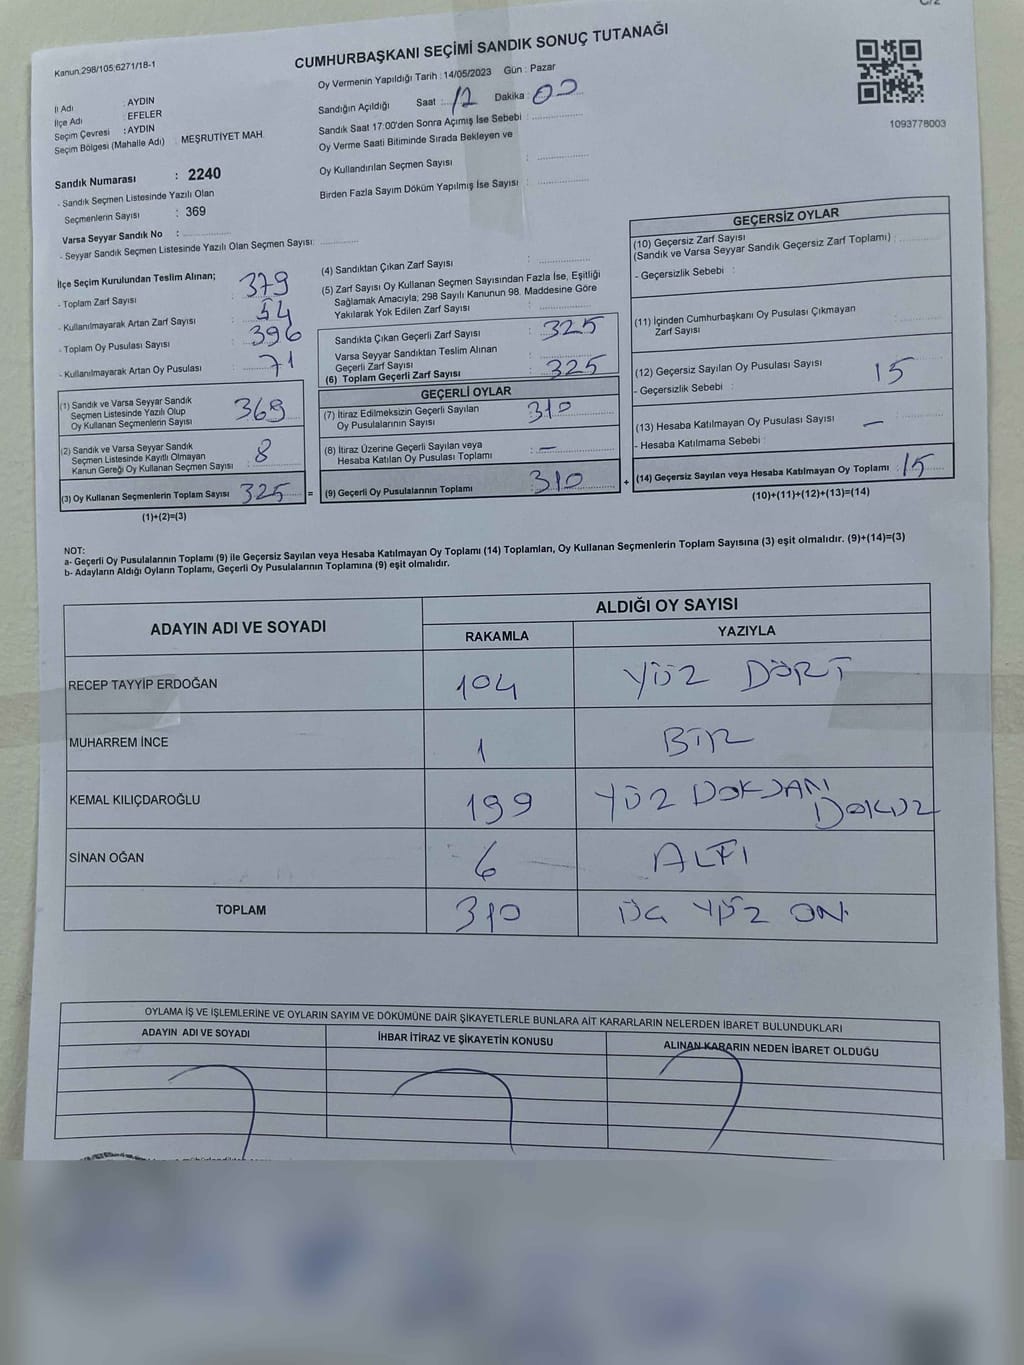 Kanun.298/105;6271/18-1
CUMHURBAŞKANI SEÇİMİ SANDIK SONUÇ TUTANAĞI
Oy Vermenin Yapıldığı Tarih : 14/05/2023 Gün : Pazar
İl Adı : AYDIN
İlçe Adı : EFELER
Seçim Çevresi : AYDIN
Seçim Bölgesi (Mahalle Adı) : MEŞRUTİYET MAH.
Sandığın Açıldığı Saat : 12 Dakika : 00
Sandık Saat 17:00'den Sonra Açımış İse Sebebi :
Oy Verme Saati Bitiminde Sırada Bekleyen ve
Oy Kullandırılan Seçmen Sayısı :
Birden Fazla Sayım Döküm Yapılmış İse Sayısı :
1093778003
Sandık Numarası : 2240
- Sandık Seçmen Listesinde Yazılı Olan
Seçmenlerin Sayısı : 369
Varsa Seyyar Sandık No :
- Seyyar Sandık Seçmen Listesinde Yazılı Olan Seçmen Sayısı:
İlçe Seçim Kurulundan Teslim Alınan;
- Toplam Zarf Sayısı : 379
- Kullanılmayarak Artan Zarf Sayısı : 54
- Toplam Oy Pusulası Sayısı : 396
- Kullanılmayarak Artan Oy Pusulası : 71
(1) Sandık ve Varsa Seyyar Sandık
Seçmen Listesinde Yazılı Olup
Oy Kullanan Seçmenlerin Sayısı 369
(2) Sandık ve Varsa Seyyar Sandık
Seçmen Listesinde Kayıtlı Olmayan
Kanun Gereği Oy Kullanan Seçmen Sayısı : 8
(3) Oy Kullanan Seçmenlerin Toplam Sayısı 325 =
(1)+(2)=(3)
(4) Sandıktan Çıkan Zarf Sayısı :
(5) Zarf Sayısı Oy Kullanan Seçmen Sayısından Fazla İse, Eşitliği
Sağlamak Amacıyla; 298 Sayılı Kanunun 98. Maddesine Göre
Yakılarak Yok Edilen Zarf Sayısı :
Sandıkta Çıkan Geçerli Zarf Sayısı : 325
Varsa Seyyar Sandıktan Teslim Alınan
Geçerli Zarf Sayısı :
(6) Toplam Geçerli Zarf Sayısı : 325
GEÇERLİ OYLAR
(7) İtiraz Edilmeksizin Geçerli Sayılan
Oy Pusulalarının Sayısı : 310
(8) İtiraz Üzerine Geçerli Sayılan veya
Hesaba Katılan Oy Pusulası Toplamı : –
(9) Geçerli Oy Pusulalarının Toplamı : 310 +
GEÇERSİZ OYLAR
(10) Geçersiz Zarf Sayısı
(Sandık ve Varsa Seyyar Sandık Geçersiz Zarf Toplamı) :
- Geçersizlik Sebebi :
(11) İçinden Cumhurbaşkanı Oy Pusulası Çıkmayan
Zarf Sayısı :
(12) Geçersiz Sayılan Oy Pusulası Sayısı : 15
- Geçersizlik Sebebi :
(13) Hesaba Katılmayan Oy Pusulası Sayısı : –
- Hesaba Katılmama Sebebi :
(14) Geçersiz Sayılan veya Hesaba Katılmayan Oy Toplamı : 15
(10)+(11)+(12)+(13)=(14)
NOT:
a- Geçerli Oy Pusulalarının Toplamı (9) ile Geçersiz Sayılan veya Hesaba Katılmayan Oy Toplamı (14) Toplamları, Oy Kullanan Seçmenlerin Toplam Sayısına (3) eşit olmalıdır. (9)+(14)=(3)
b- Adayların Aldığı Oyların Toplamı, Geçerli Oy Pusulalarının Toplamına (9) eşit olmalıdır.
ADAYIN ADI VE SOYADI ALDIĞI OY SAYISI
RAKAMLA YAZIYLA
RECEP TAYYİP ERDOĞAN 104 YÜZ DÖRT
MUHARREM İNCE 1 BİR
KEMAL KILIÇDAROĞLU 199 YÜZ DOKSAN DOKUZ
SİNAN OĞAN 6 ALTI
TOPLAM 310 ÜÇ YÜZ ON
OYLAMA İŞ VE İŞLEMLERİNE VE OYLARIN SAYIM VE DÖKÜMÜNE DAİR ŞİKAYETLERLE BUNLARA AİT KARARLARIN NELERDEN İBARET BULUNDUKLARI
ADAYIN ADI VE SOYADI İHBAR İTİRAZ VE ŞİKAYETİN KONUSU ALINAN KARARIN NEDEN İBARET OLDUĞU